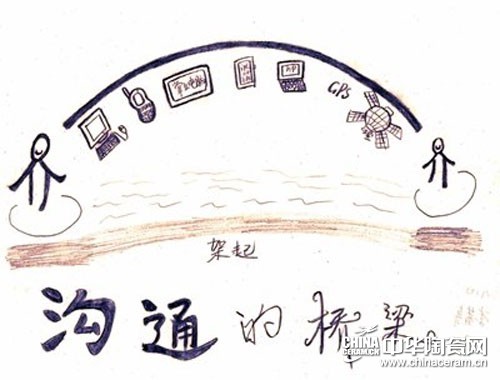 GPS
架起
沟通的桥梁。
CHINA CERAM.CN 中华陶瓷网
www.chinaceram.cn